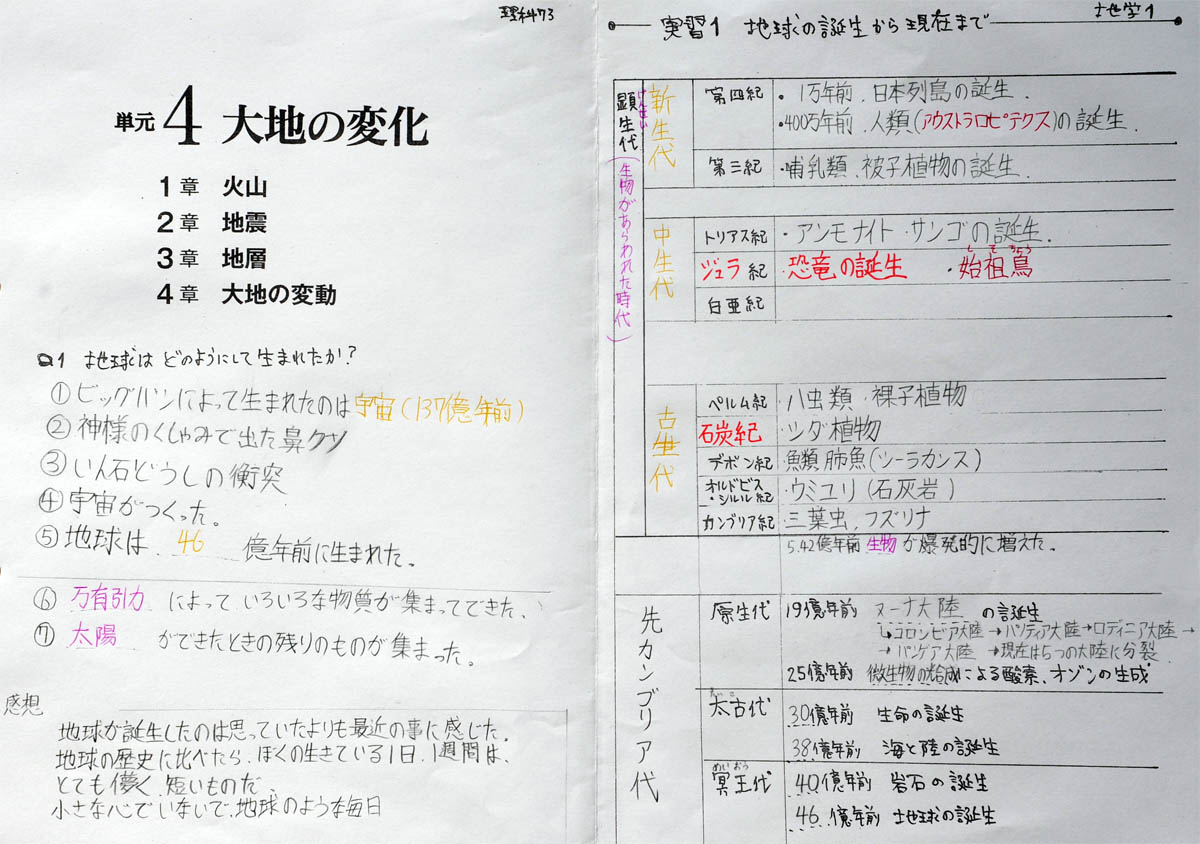 理科73
単元4 大地の変化
1章 火山
2章 地震
3章 地層
4章 大地の変動
Q1 地球は どのようにして生まれたか?
① ビッグバンによって生まれたのは宇宙(137億年前)
② 神様のくしゃみで出た鼻クソ
③ いん石どうしの衝突
④ 宇宙がつくった。
⑤ 地球は 46 億年前に生まれた。
⑥ 万有引力 によって いろいろな物質が集まってできた。
⑦ 太陽 ができたときの残りのものが集まった。
感想
地球が誕生したのは思っていたよりも最近の事に感じた。
地球の歴史に比べたら、ぼくの生きている1日、1週間は、
とても儚く、短いものだ、
小さな心でいないで、地球のような毎日
地学1
実習1 地球の誕生から現在まで
顕生代
けんせい
(生物があらわれた時代)
新生代
第四紀 ・1万年前 日本列島の誕生.
・400万年前、人類(アウストラロピテクス)の誕生.
第三紀 ・哺乳類、被子植物の誕生.
中生代
トリアス紀 ・アンモナイト・サンゴの誕生.
ジュラ紀 ・恐竜の誕生 ・始祖鳥
しそちょう
白亜紀
古生代
ペルム紀 ・ハ虫類・裸子植物
石炭紀 ・シダ植物
デボン紀 ・魚類 肺魚(シーラカンス)
オルドビス
・シルル紀 ・ウミユリ(石灰岩)
カンブリア紀 ・三葉虫、フズリナ
5.42億年前 生物が爆発的に増えた。
先カンブリア代
原生代 19億年前 ヌーナ大陸 の誕生
↳コロンビア大陸→パノティア大陸→ロディニア大陸→
→パンゲア大陸→現在は5つの大陸に分裂
25億年前 微生物の光合成による酸素、オゾンの生成
たいこ
太古代 30億年前 生命の誕生
38億年前 海と陸の誕生
めいおう
冥王代 40億年前 岩石の誕生
46億年前 地球の誕生